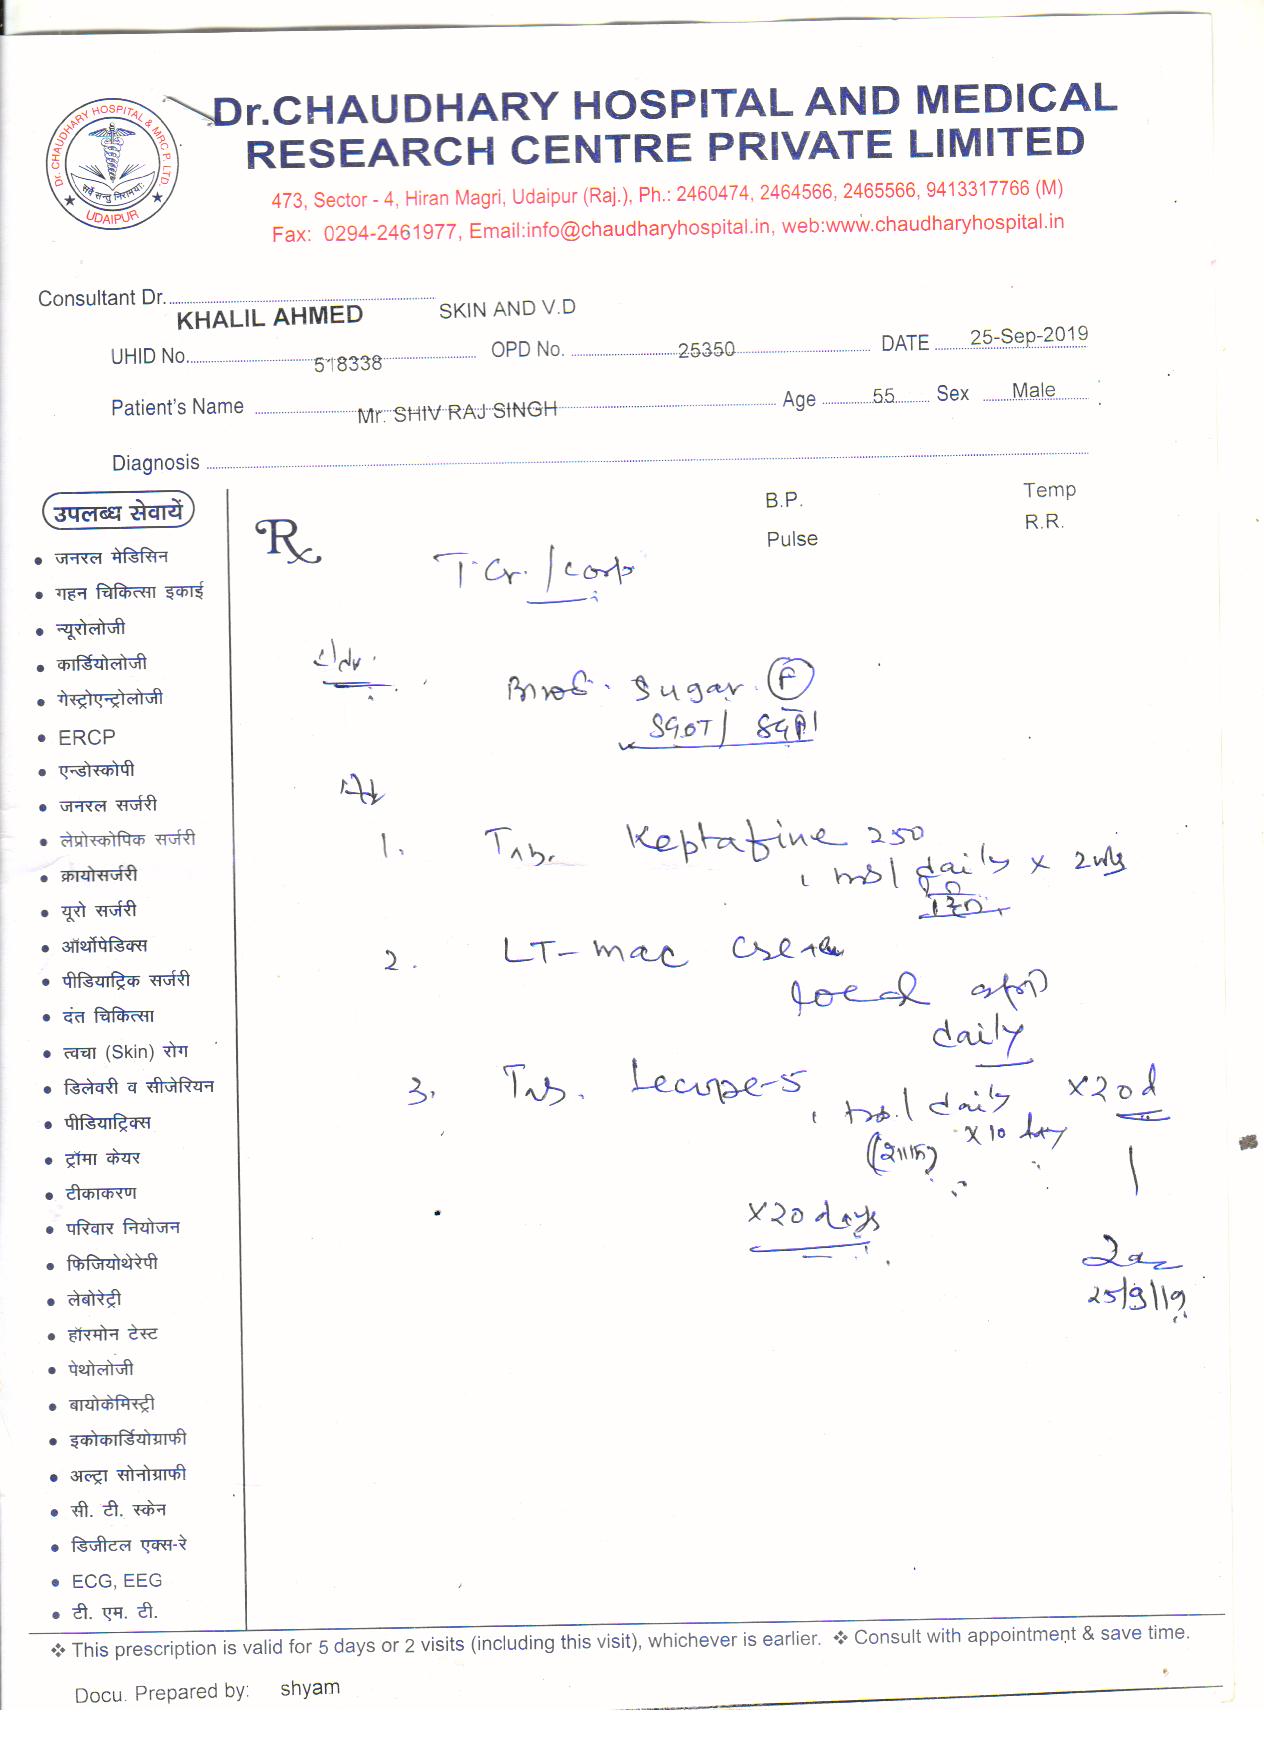 Dr. CHAUDHARY HOSPITAL & MRC P. LTD.
सर्वे सन्तु निरामयाः
UDAIPUR
Dr.CHAUDHARY HOSPITAL AND MEDICAL
RESEARCH CENTRE PRIVATE LIMITED
473, Sector - 4, Hiran Magri, Udaipur (Raj.), Ph.: 2460474, 2464566, 2465566, 9413317766 (M)
Fax: 0294-2461977, Email:info@chaudharyhospital.in, web:www.chaudharyhospital.in
Consultant Dr. KHALIL AHMED SKIN AND V.D
UHID No. 518338 OPD No. 25350 DATE 25-Sep-2019
Patient's Name Mr. SHIV RAJ SINGH Age 55 Sex Male
Diagnosis
B.P. Temp
Pulse R.R.
उपलब्ध सेवायें
• जनरल मेडिसिन
• गहन चिकित्सा इकाई
• न्यूरोलोजी
• कार्डियोलोजी
• गेस्ट्रोएन्ट्रोलोजी
• ERCP
• एन्डोस्कोपी
• जनरल सर्जरी
• लेप्रोस्कोपिक सर्जरी
• क्रायोसर्जरी
• यूरो सर्जरी
• ऑर्थोपेडिक्स
• पीडियाट्रिक सर्जरी
• दंत चिकित्सा
• त्वचा (Skin) रोग
• डिलेवरी व सीजेरियन
• पीडियाट्रिक्स
• ट्रॉमा केयर
• टीकाकरण
• परिवार नियोजन
• फिजियोथेरेपी
• लेबोरेट्री
• हॉरमोन टेस्ट
• पेथोलोजी
• बायोकेमिस्ट्री
• इकोकार्डियोग्राफी
• अल्ट्रा सोनोग्राफी
• सी. टी. स्केन
• डिजीटल एक्स-रे
• ECG, EEG
• टी. एम. टी.
R
T. Cr. / Corp
Blood Sugar (F)
SGOT / SGPT
1. Tab. Keptafine 250
daily x 2
2. LT-mac Cream
local
daily
3. Tab. 5
daily x 20 d
x 10 day
x 20 days
25/9/19
❖ This prescription is valid for 5 days or 2 visits (including this visit), whichever is earlier. ❖ Consult with appointment & save time.
Docu. Prepared by: shyam